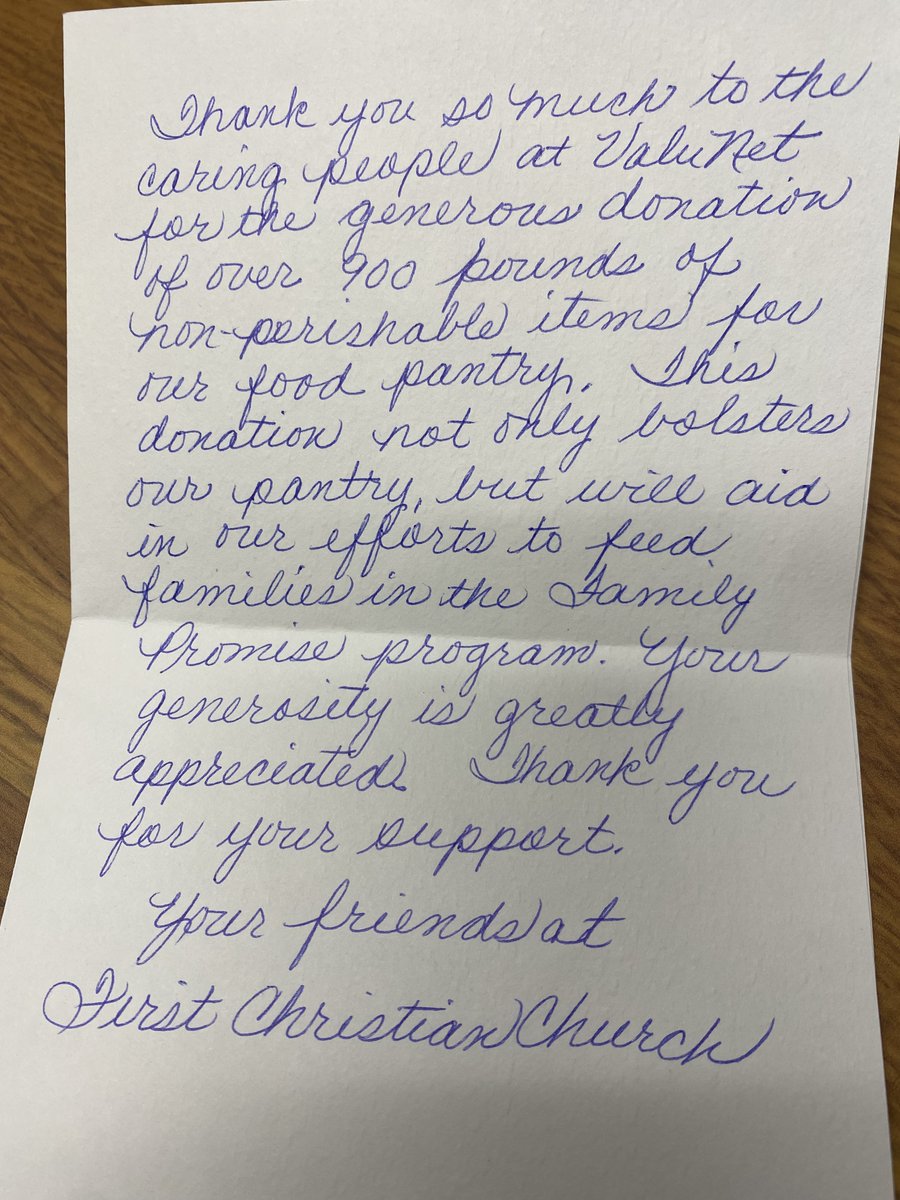 Thank you so much to the
caring people at ValuNet
for the generous donation
of over 900 pounds of
non-perishable items for
our food pantry. This
donation not only bolsters
our pantry, but will aid
in our efforts to feed
families in the Family
Promise program. Your
generosity is greatly
appreciated. Thank you
for your support.
Your friends at
First Christian Church